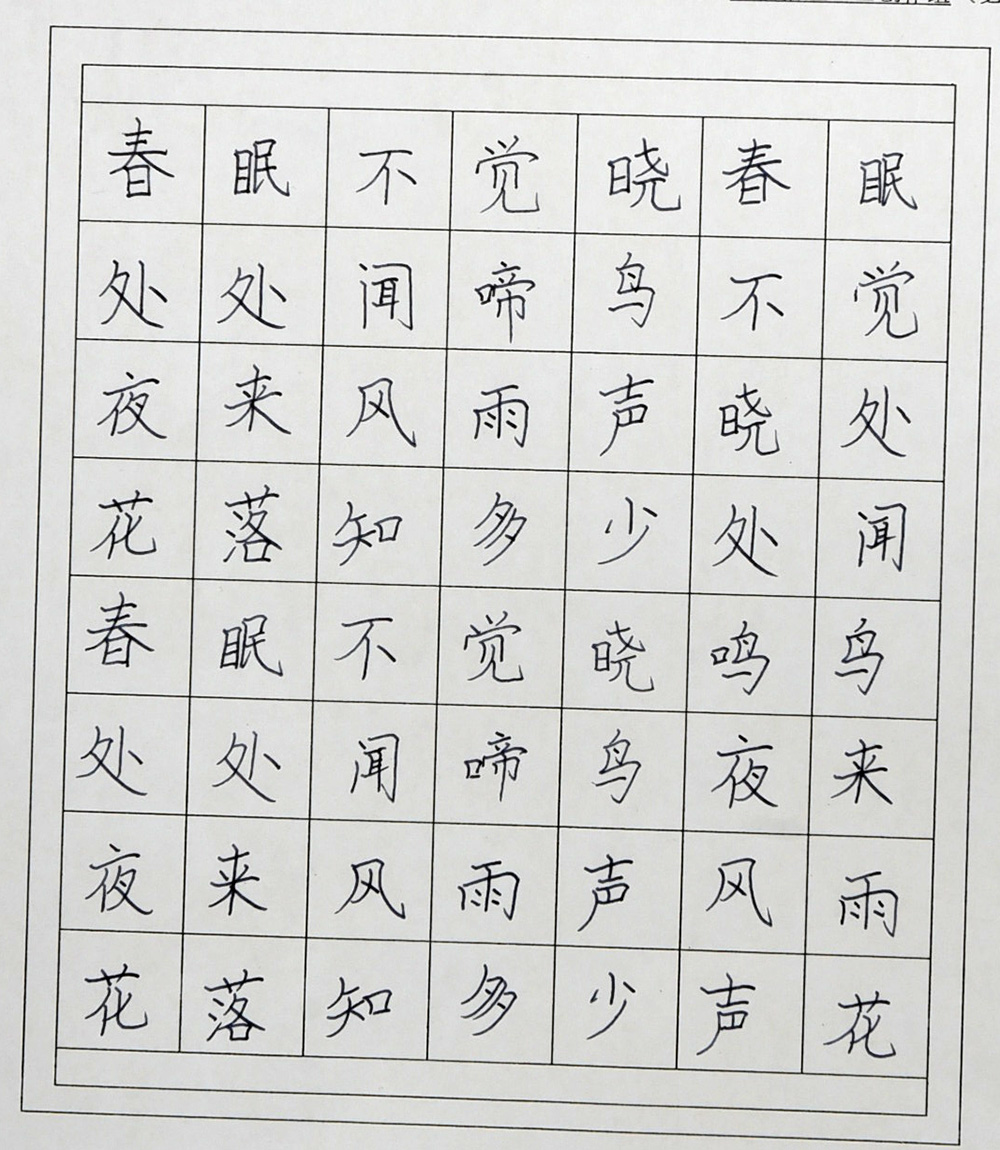 春眠不觉晓春眠
处处闻啼鸟不觉
夜来风雨声晓处
花落知多少处闻
春眠不觉晓鸣鸟
处处闻啼鸟夜来
夜来风雨声风雨
花落知多少声花